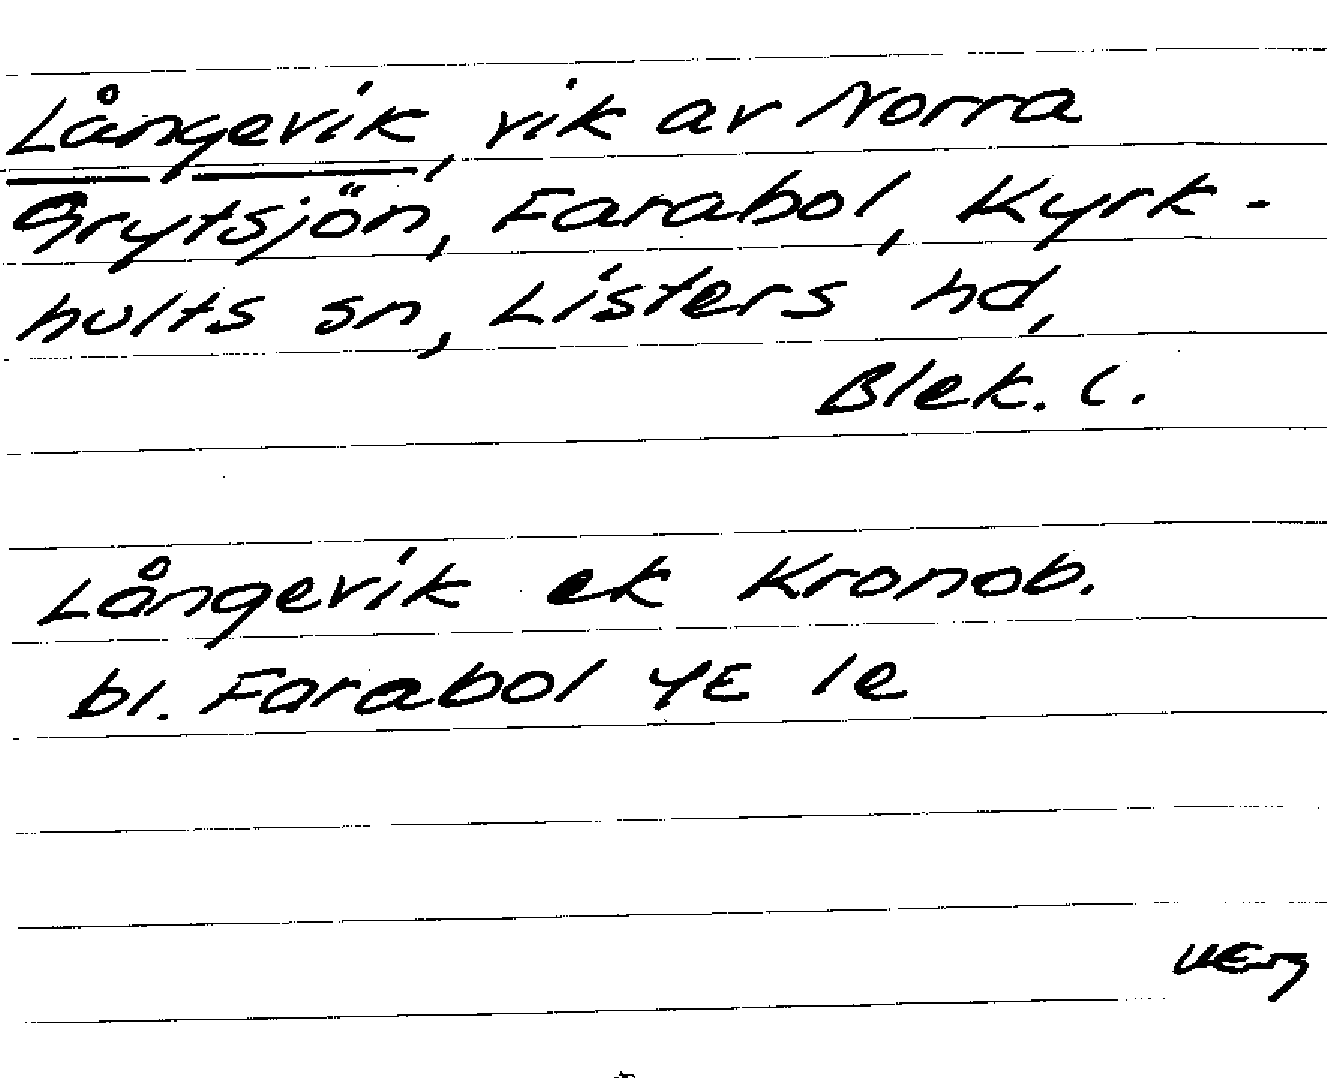 Långevik, vik av Norra
Grytsjön, Farabol, Kyrk-
hults sn, Listers hd,
Blek. l.
Långevik ek Kronob.
bl. Farabol 4E 1e